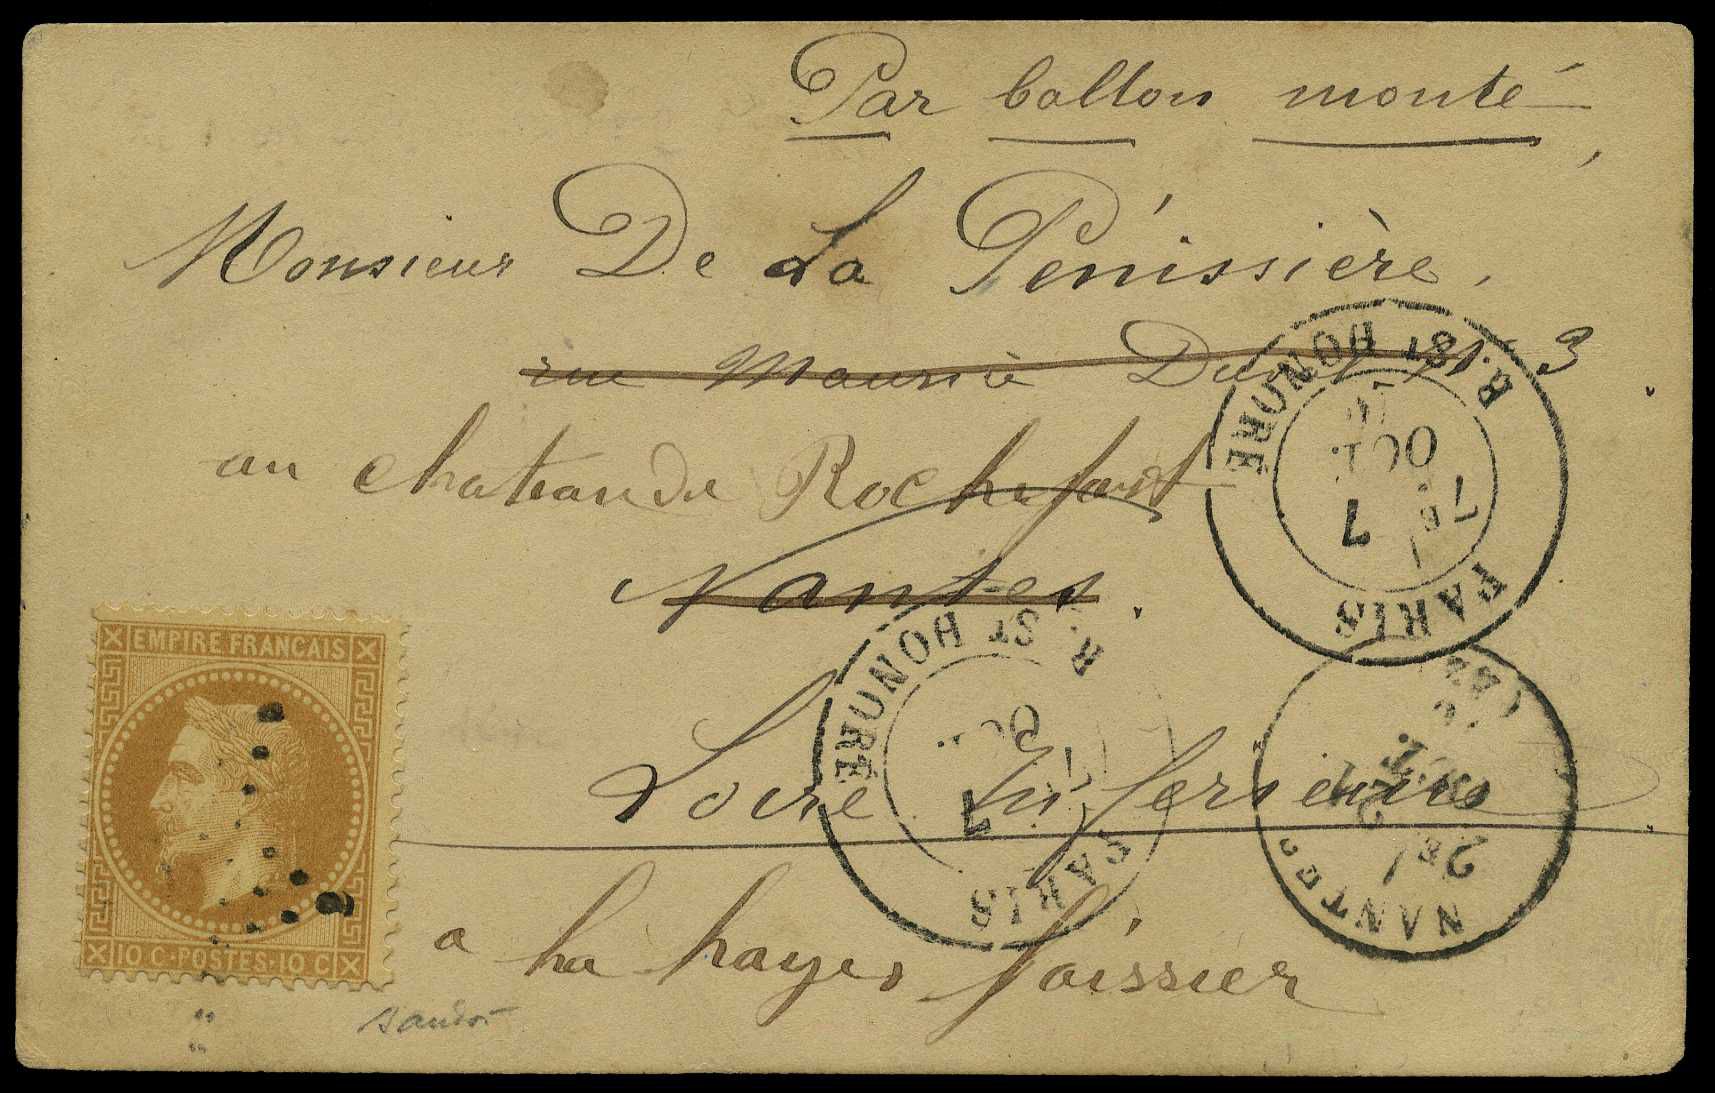 Par ballon monté
Monsieur De La Pénissière,
rue Maurice Duval No 3
au chateau de Rochefort
Nantes.
Loire Inférieure
a la hayes foissier
EMPIRE FRANCAIS
10 C-POSTES-10 C
2
R. ST HONORÉ
OCT.
7E
7
PARIS
R. ST HONORÉ
OCT.
7
PARIS
NANTES
2E